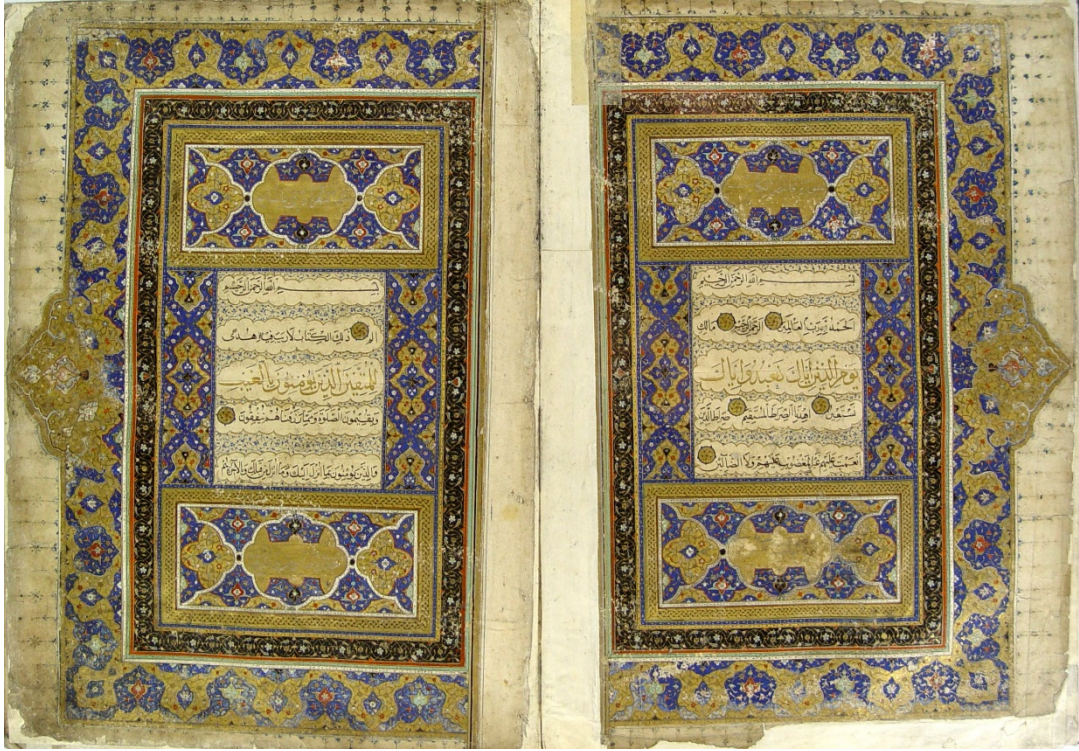 بسم الله الرحمن الرحيم
الحمد لله رب العالمين الرحمن الرحيم مالك
يوم الدين اياك نعبد واياك
نستعين اهدنا الصراط المستقيم صراط الذين
انعمت عليهم غير المغضوب عليهم ولا الضالين
بسم الله الرحمن الرحيم
الم ذلك الكتاب لا ريب فيه هدى
للمتقين الذين يؤمنون بالغيب
ويقيمون الصلوة ومما رزقناهم ينفقون
والذين يؤمنون بما انزل اليك وما انزل من قبلك وبالاخرة هم